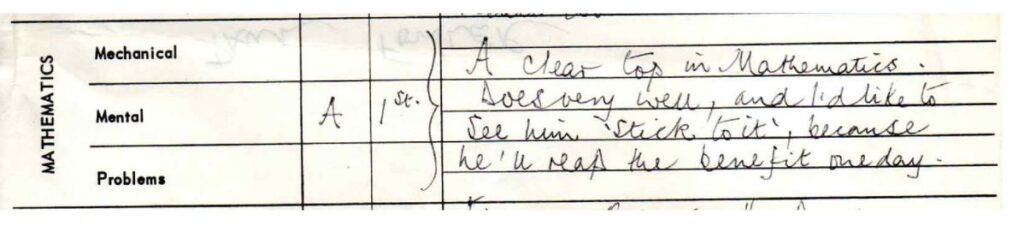 MATHEMATICS
Mechanical
Mental
Problems
A
1st.
A clear top in Mathematics.
Does very well, and I'd like to
see him 'stick to it', because
he'll reap the benefit one day.